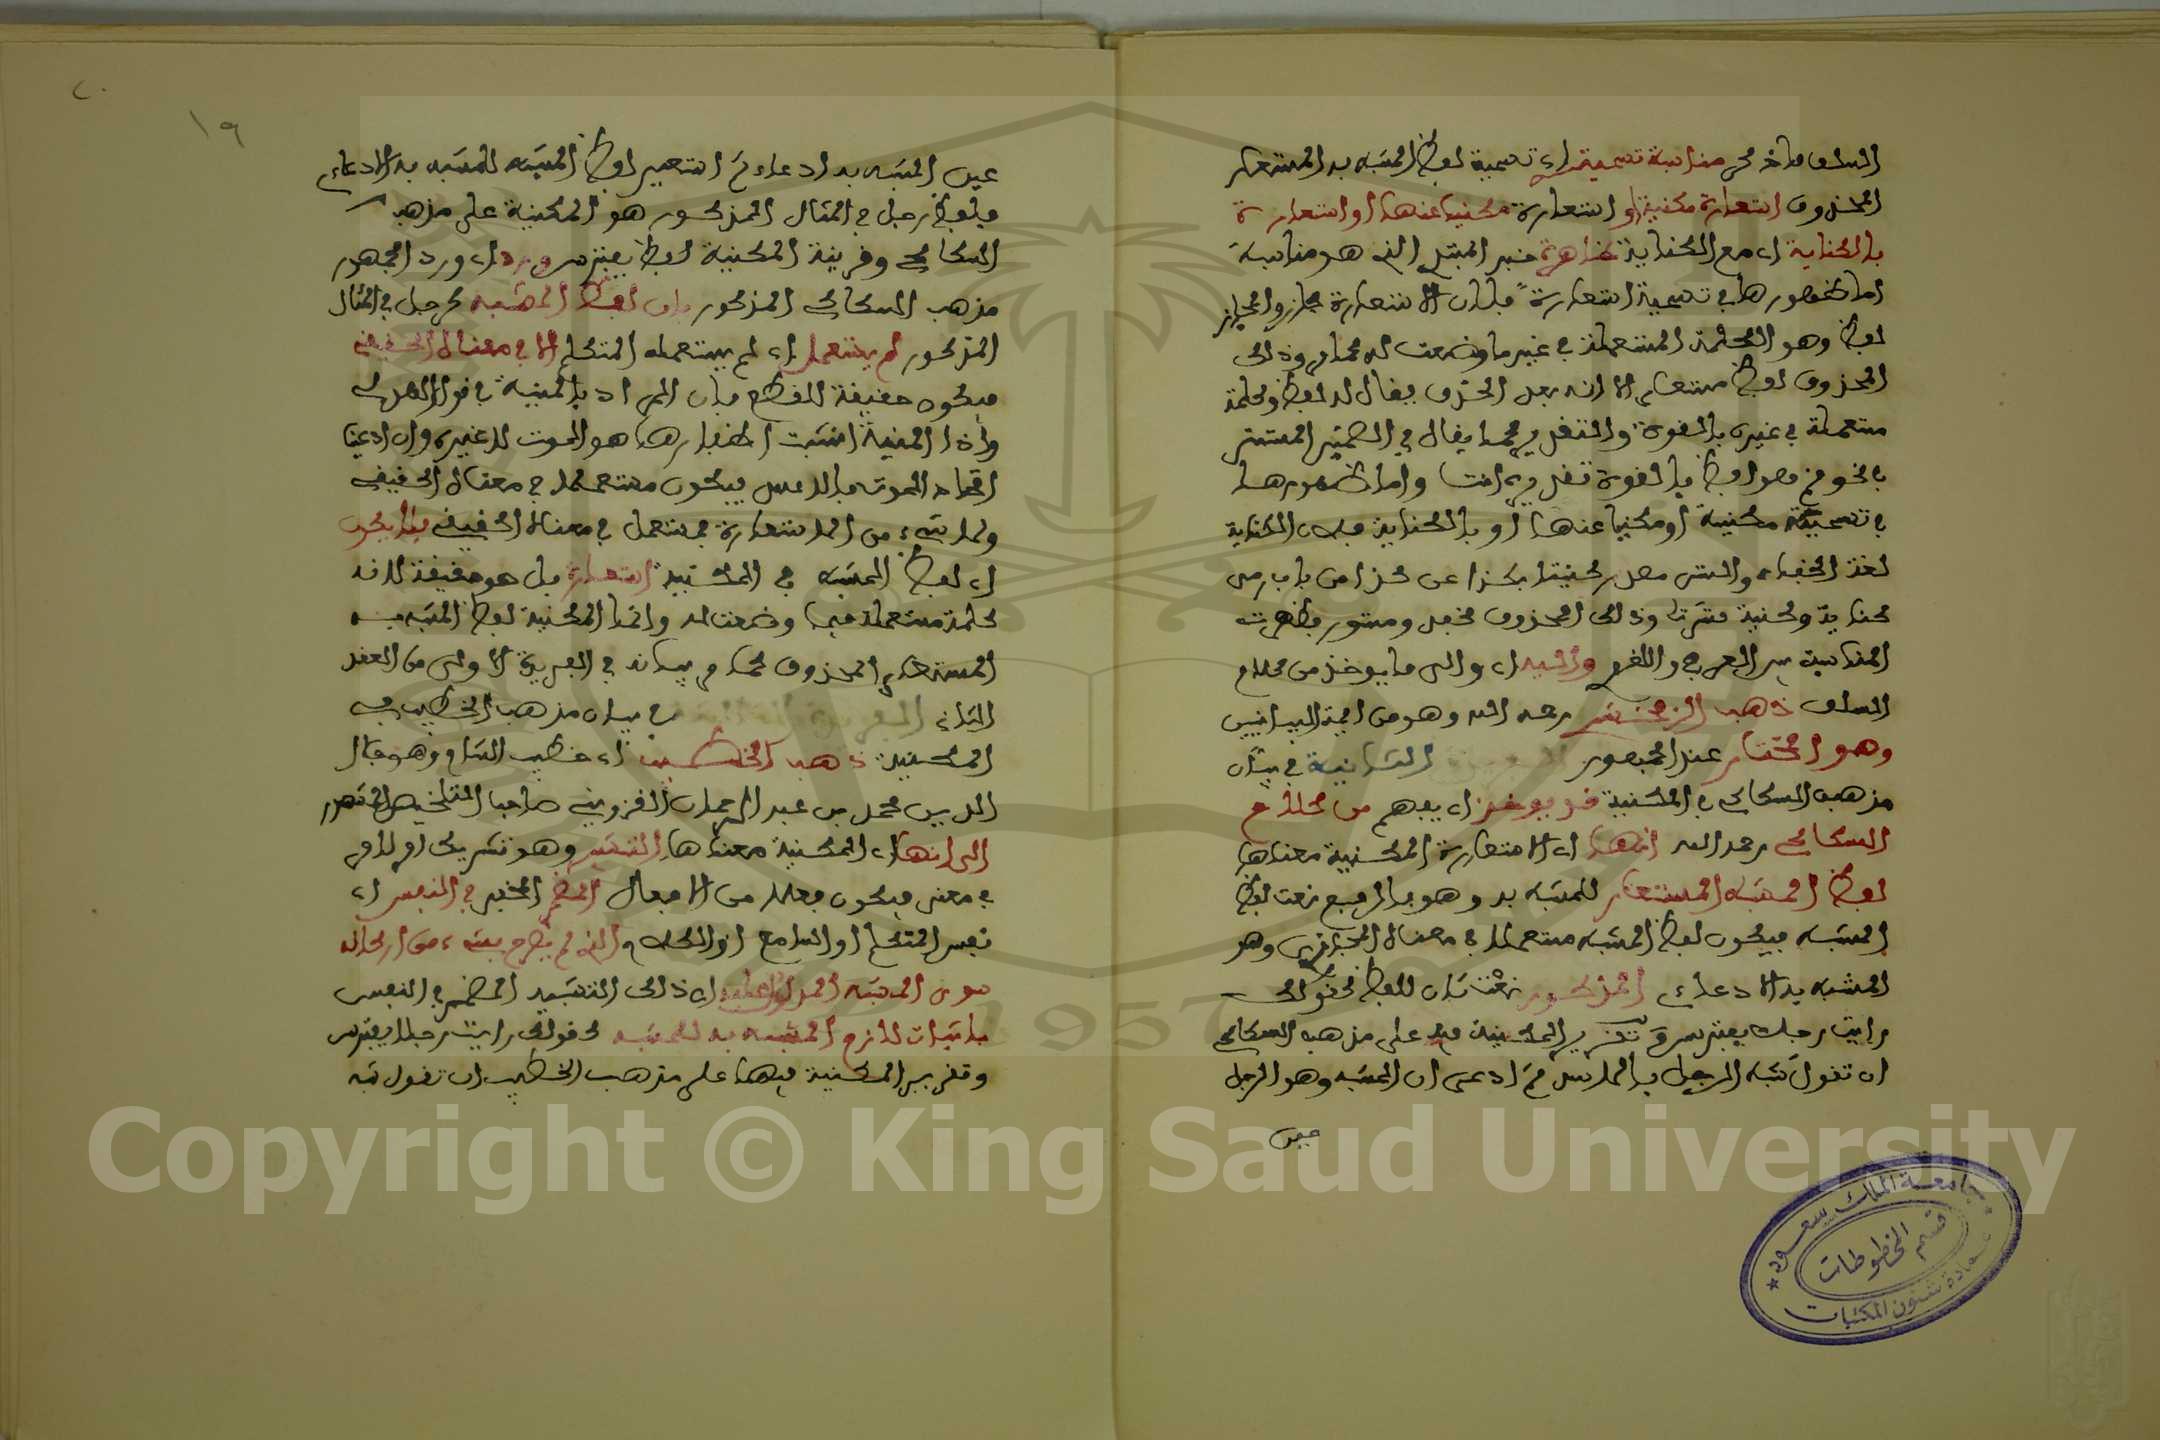 السلف فما ذكر من مناسبة تسميته اي تسمية لفظ المشبه به المستعار
المحذوف استعارة مكنية او استعارة مكنيا عنها او استعارة
بالكناية اي مع الكناية ظاهرة خبر المبتدا الذي هو مناسبة
اما ظهورها في تسمية استعارة فلان الاستعارة مجاز والمجاز
لفظ وهو الكلمة المستعملة في غير ما وضعت له كما مر وذلك
المحذوف لفظ مستعار الا انه بعد الحذف يقال له لفظ وكلمة
مستعملة في غيره بالقوة والتقدير كما يقال في الضمير المستتر
في نحو قم هو لفظ بالقوة تقديره انت واما ظهورها
في تسميته مكنية او مكنيا عنها او بالكناية فلان الكناية
لغة الخفاء والستر مصدر كنيت بكذا عن كذا من باب رمى
كناية وكنية سترت وذلك المحذوف مخفى ومستور فظهرت
المناسبة بين العرفي واللغوي واليه اي والى ما يؤخذ من كلام
السلف ذهب الزمخشري رحمه الله وهو من ايمة البيانيين
وهو المختار عند الجمهور الفريدة الثانية في بيان
مذهب السكاكي في المكنية قد يؤخذ اي يفهم من كلام
السكاكي رحمه الله انها اي الاستعارة المكنية معناها
لفظ المشبه المستعار للمشبه به وهو بالرفع نعت لفظ
المشبه فيكون لفظ المشبه مستعملا في معناه المجازي وهو
المشبه به الادعاءي المذكور نعت ثان للفظ كقولك
رايت رجلا يفترس وتقرير المكنية فيه على مذهب السكاكي
ان تقول شبه الرجل بالاسد ثم ادعى ان المشبه وهو الرجل
عين
٢٠
١٩
عين المشبه به ادعاء ثم استعير لفظ المشبه للمشبه به الادعاءي
فلفظ رجل في المثال المذكور هو المكنية على مذهب
السكاكي وقرينة المكنية لفظ يفترس ورد اي ورد الجمهور
مذهب السكاكي المذكور بان لفظ المشبه كرجل في المثال
المذكور لم يستعمل اي لم يستعمله المتكلم الا في معناه الحقيقي
فيكون حقيقة للقطع بان المراد بالمنية في قول الهذلي
واذا المنية انشبت اظفارها هو الموت لا غيره وان ادعينا
اتحاد الموت بالاسد فيكون مستعملا في معناه الحقيقي
ولا شيء من الاستعارة بمستعمل في معناه الحقيقي فلا يكون
اي لفظ المشبه في المكنية استعارة بل هو حقيقة لانه
كلمة مستعملة فيما وضعت له وانما المكنية لفظ المشبه به
المستعار المحذوف كما مر بيانه في الفريدة الاولى من العقد
الثاني الفريدة الثالثة في بيان مذهب الخطيب في
المكنية ذهب الخطيب اي خطيب الشام وهو جمال
الدين محمد بن عبد الرحمان القزويني صاحب التلخيص المشهور
الى انها اي المكنية معناها التشبيه وهو تشريك امر لامر
في معنى فيكون فعلا من الافعال المضمر المخفي في النفس اي
نفس المتكلم او السامع او الكلام الذي لم يصرح بشيء من اركانه
سوى المشبه المدلول عليه اي ذلك التشبيه المضمر في النفس
باثبات لازم المشبه به للمشبه كقولك رايت رجلا يفترس
وتقرير المكنية فيها على مذهب الخطيب ان تقول شبه
جامعة الملك سعود
قسم المخطوطات
عمادة شئون المكتبات
1957
Copyright © King Saud University